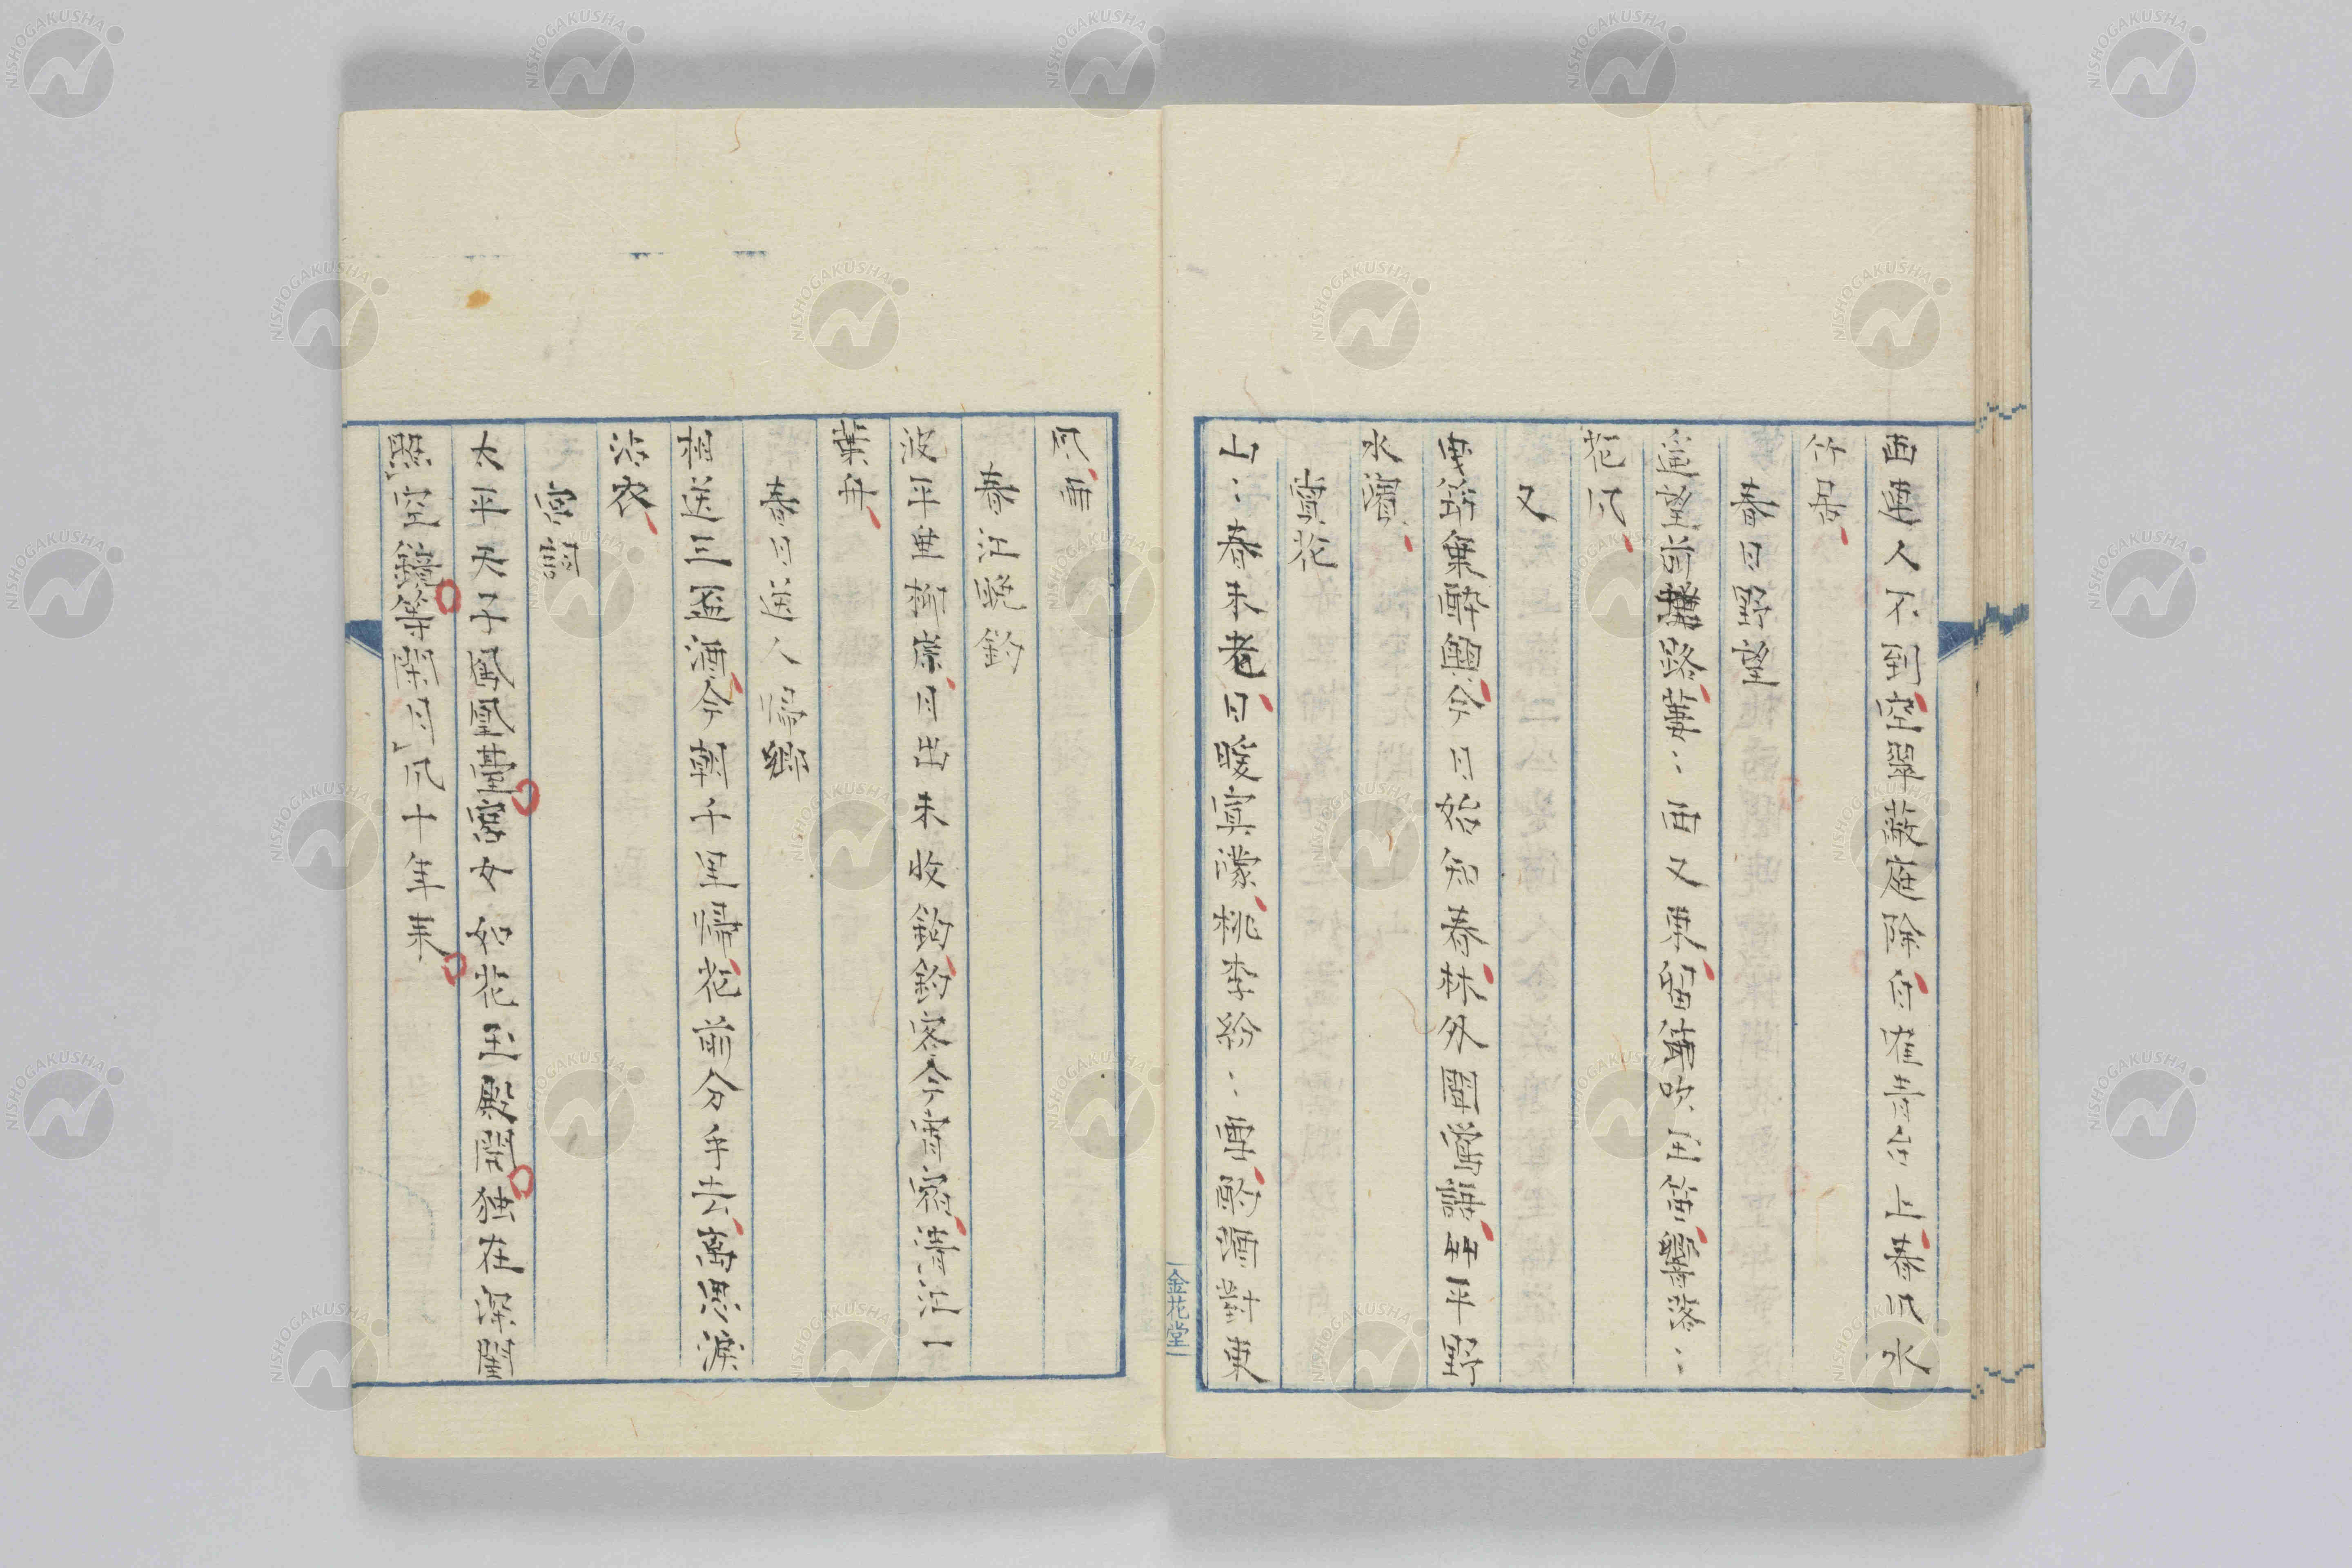 西車人不到空翠蔽庭除白雀青石上春風水
竹居
春日野望
遥望前路蕭〻西又東番蕃吹笛落〻
花風
又
無莭乗酔興今日始知春林外聞鶯語艸平野
水濱
賞花
山〻春未老日暖寅濛桃李紛〻車酌酒對東
風車
春江晩釣
波平垂柳岸月出未收鈎釣客今宵宿清江一
葉舟
春日送人帰郷
相送三盃酒今朝千里帰花前分手去萬愚淚
沾衣
宮詞
太平天子鳳凰臺宮女如花玉殿開独在深閨
照空鏡等閑月風十年来
金花堂
NISHOGAKUSHA